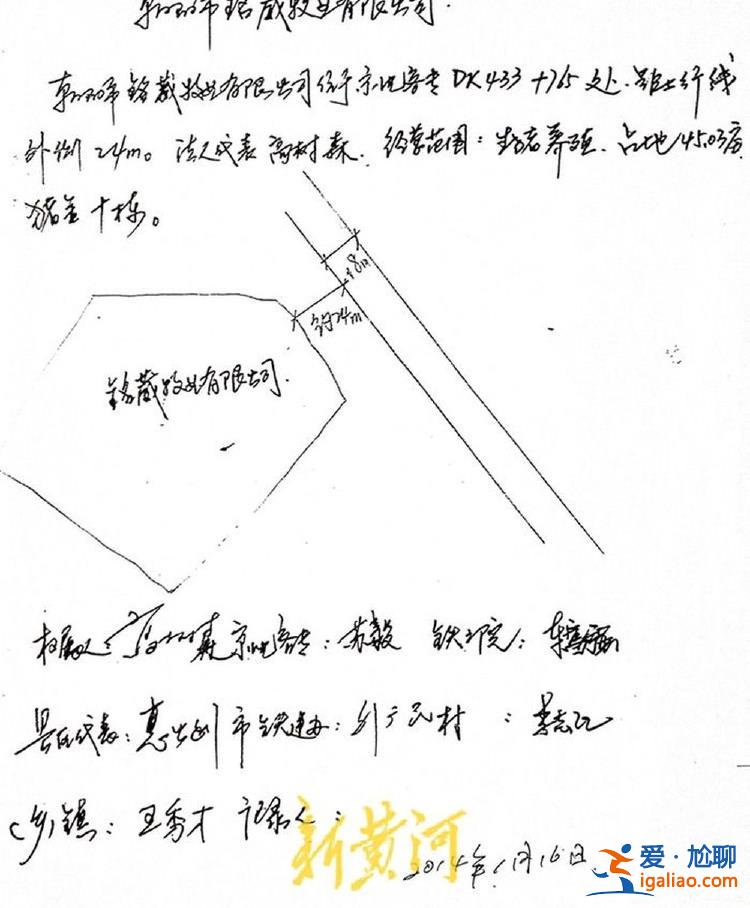 朝阳市铭葳牧业有限公司.
朝阳市铭葳牧业有限公司位于京沈客专DK433+765处.距上行线
外侧24m。法人代表高树森.经营范围:生猪养殖.占地45.03亩
猪舍十栋。
18m
约24m
铭葳牧业有限公司.
权属人:高树森 京沈客专:苏毅 铁三院:
县区代表: 市铁建办: 村:
乡镇:王秀才 记录人:
新黄河
2014年1月16日
爱·尬聊
igaliao.com